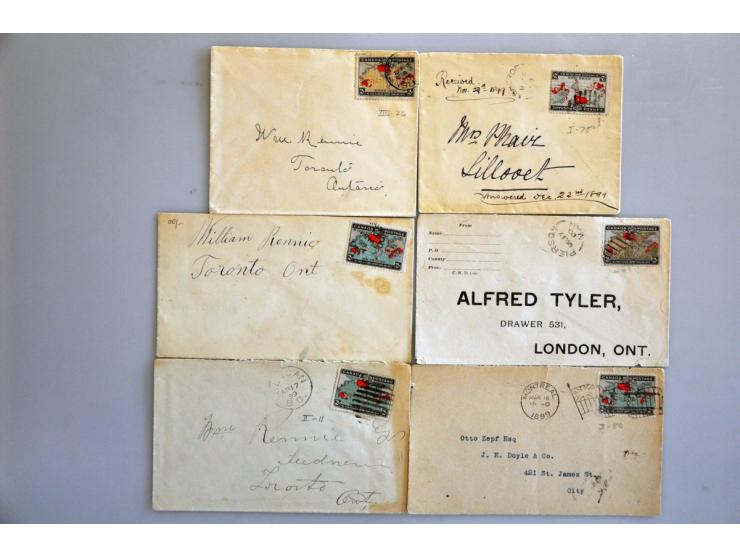 CANADA POSTAGE
III-26
Wm Rennie
Toronto
Ontario
Received
Nov. 29th 1899
CANADA POSTAGE
I-75
Mrs Phair
Lillooet
Answered Dec 22nd 1899
William Rennie
Toronto Ont
CANADA POSTAGE
From
Name
P.O.
County
Prov.
PIERSON
MAN
CANADA POSTAGE
ALFRED TYLER,
DRAWER 531,
LONDON, ONT.
CANADA POSTAGE
II-11
Wm Rennie
Seedman
Toronto
Ont
MONTREAL
MAR 16
1899
CANADA POSTAGE
Otto Zepf Esq
J. E. Doyle & Co.
421 St. James St.
City